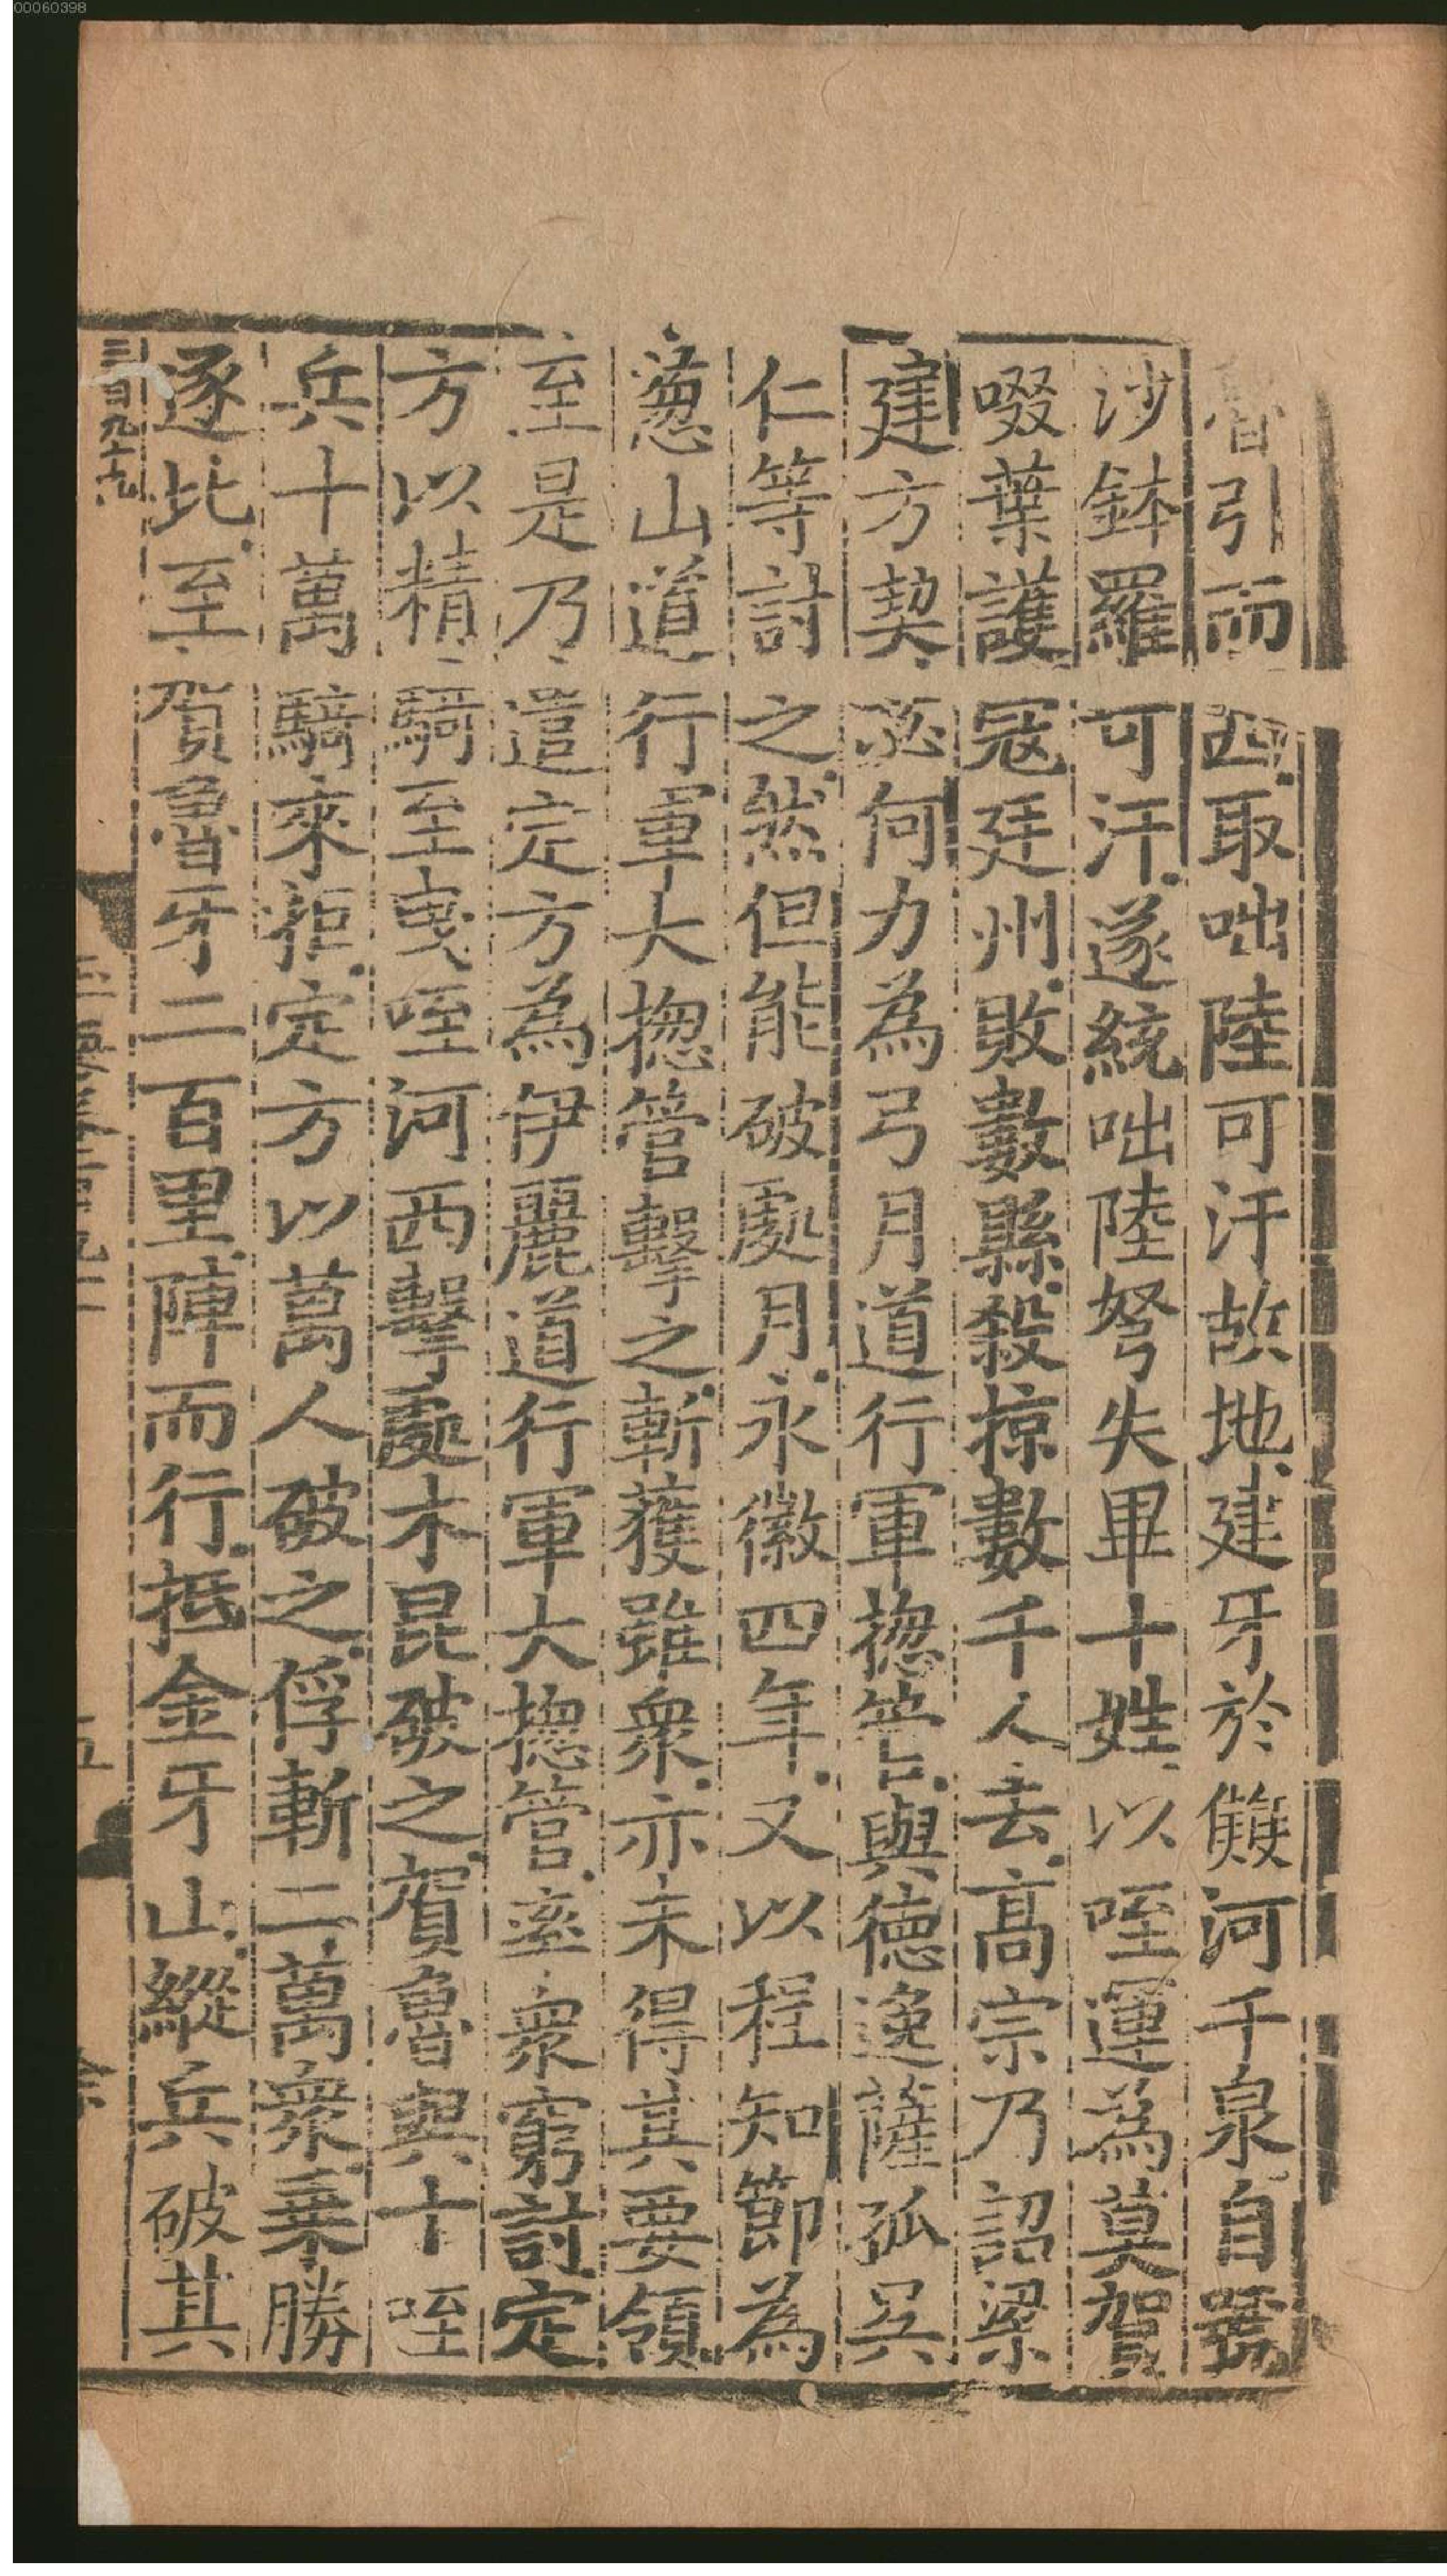 00060398
魯引而西取咄陸可汗故地建牙於雙河千泉自號
沙鉢羅可汗遂統咄陸弩失畢十姓以咥運為莫賀
啜葉護寇廷州敗數縣殺掠數千人去高宗乃詔梁
建方契苾何力為弓月道行軍揔管與德逸薩孤吳
仁等討之然但能破處月永徽四年又以程知節為
葱山道行軍大揔管擊之斬獲雖衆亦未得其要領
至是乃遣定方為伊麗道行軍大揔管率衆窮討定
方以精騎至曳咥河西擊處木昆破之賀魯與十咥
兵十萬騎來拒定方以萬人破之俘斬二萬衆乘勝
逐北至賀魯牙二百里陣而行抵金牙山縱兵破其